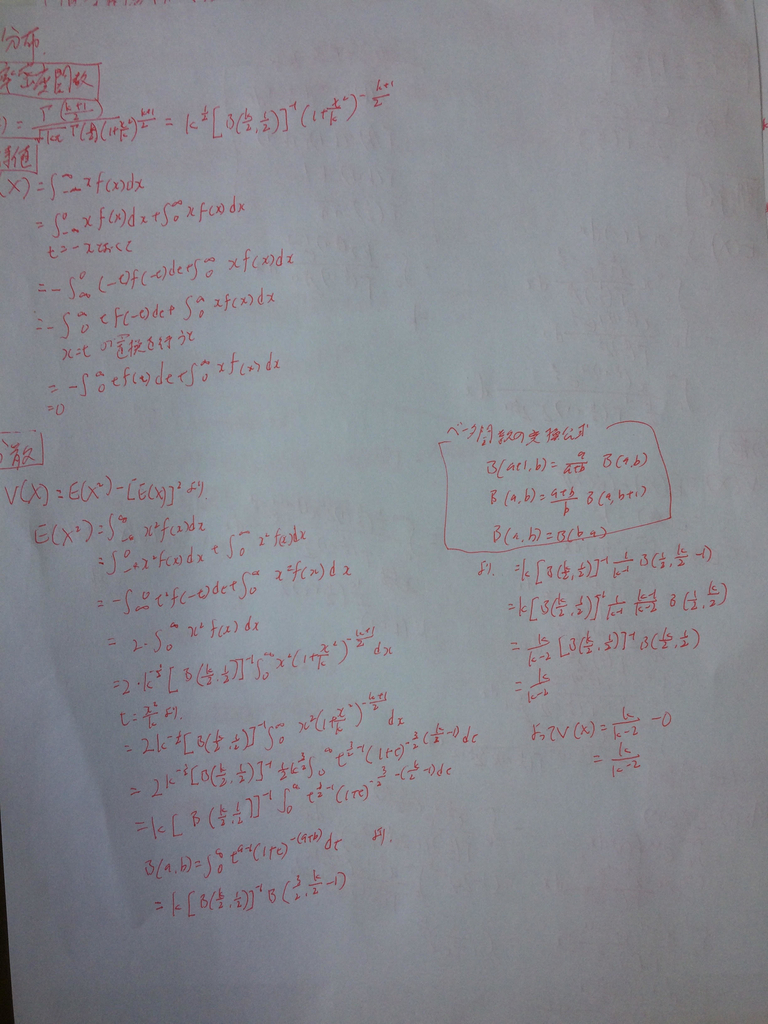 分布.
密度関数
) = Γ(k+1/2) / √kπ Γ(k/2)(1+x²/k)^{k+1/2} = k^{1/2}[B(k/2,1/2)]^{-1}(1+x²/k)^{-k+1/2}
待値
(X) = ∫_{-∞}^{∞} x f(x)dx
= ∫_{-∞}^{0} x f(x)dx + ∫_{0}^{∞} x f(x)dx
t=-xとおくと
= -∫_{∞}^{0} (-t)f(-t)dt + ∫_{0}^{∞} x f(x)dx
= -∫_{0}^{∞} t f(-t)dt + ∫_{0}^{∞} x f(x)dx
x=t の置換を行うと
= -∫_{0}^{∞} t f(x)dt + ∫_{0}^{∞} x f(x)dx
= 0
分散
V(X) = E(X²) - [E(X)]² より.
E(X²) = ∫_{-∞}^{∞} x² f(x)dx
= ∫_{-∞}^{0} x² f(x)dx + ∫_{0}^{∞} x² f(x)dx
= -∫_{∞}^{0} t² f(-t)dt + ∫_{0}^{∞} x² f(x)dx
= 2・∫_{0}^{∞} x² f(x)dx
= 2・k^{-1/2}[B(k/2,1/2)]^{-1} ∫_{0}^{∞} x²(1+x²/k)^{-k+1/2} dx
t = x²/k より.
= 2k^{-1/2}[B(k/2,1/2)]^{-1} ∫_{0}^{∞} x²(1+x²/k)^{-k+1/2} dx
= 2k^{-1/2}[B(k/2,1/2)]^{-1} 1/2 k^{3/2} ∫_{0}^{∞} t^{3/2-1}(1+t)^{-3/2-(k/2-1)} dt
= k[B(k/2,1/2)]^{-1} ∫_{0}^{∞} t^{3/2-1}(1+t)^{-3/2-(k/2-1)} dt
B(a,b) = ∫_{0}^{∞} t^{a-1}(1+t)^{-(a+b)} dt より.
= k[B(k/2,1/2)]^{-1} B(3/2,k/2-1)
ベータ関数の変換公式
B(a+1,b) = a/a+b B(a,b)
B(a,b) = a+b/b B(a,b+1)
B(a,b) = B(b,a)
より. = k[B(k/2,1/2)]^{-1} 1/k-1 B(1/2,k/2-1)
= k[B(k/2,1/2)]^{-1} 1/k-1 k-1/k-2 B(1/2,k/2)
= k/k-2 [B(k/2,1/2)]^{-1} B(k/2,1/2)
= k/k-2
よって V(X) = k/k-2 - 0
= k/k-2